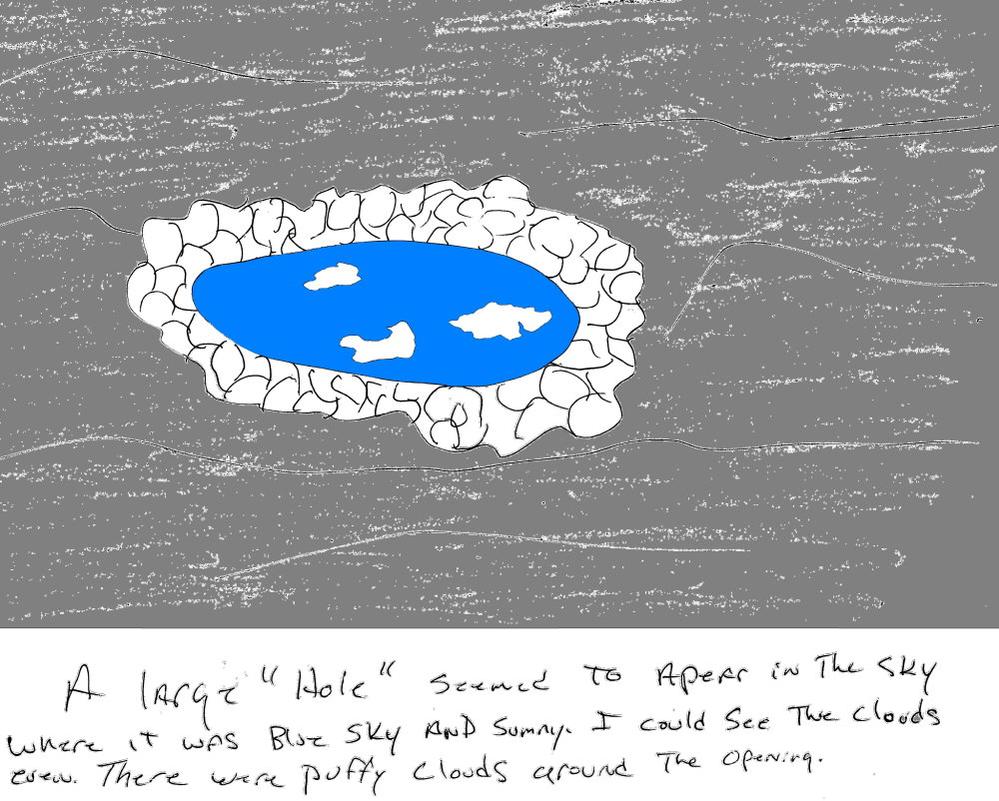 A large "Hole" seemed to Apear in The Sky
where it was Blue Sky AND Sunny. I could See The Clouds
even. There were puffy Clouds around The Opening.